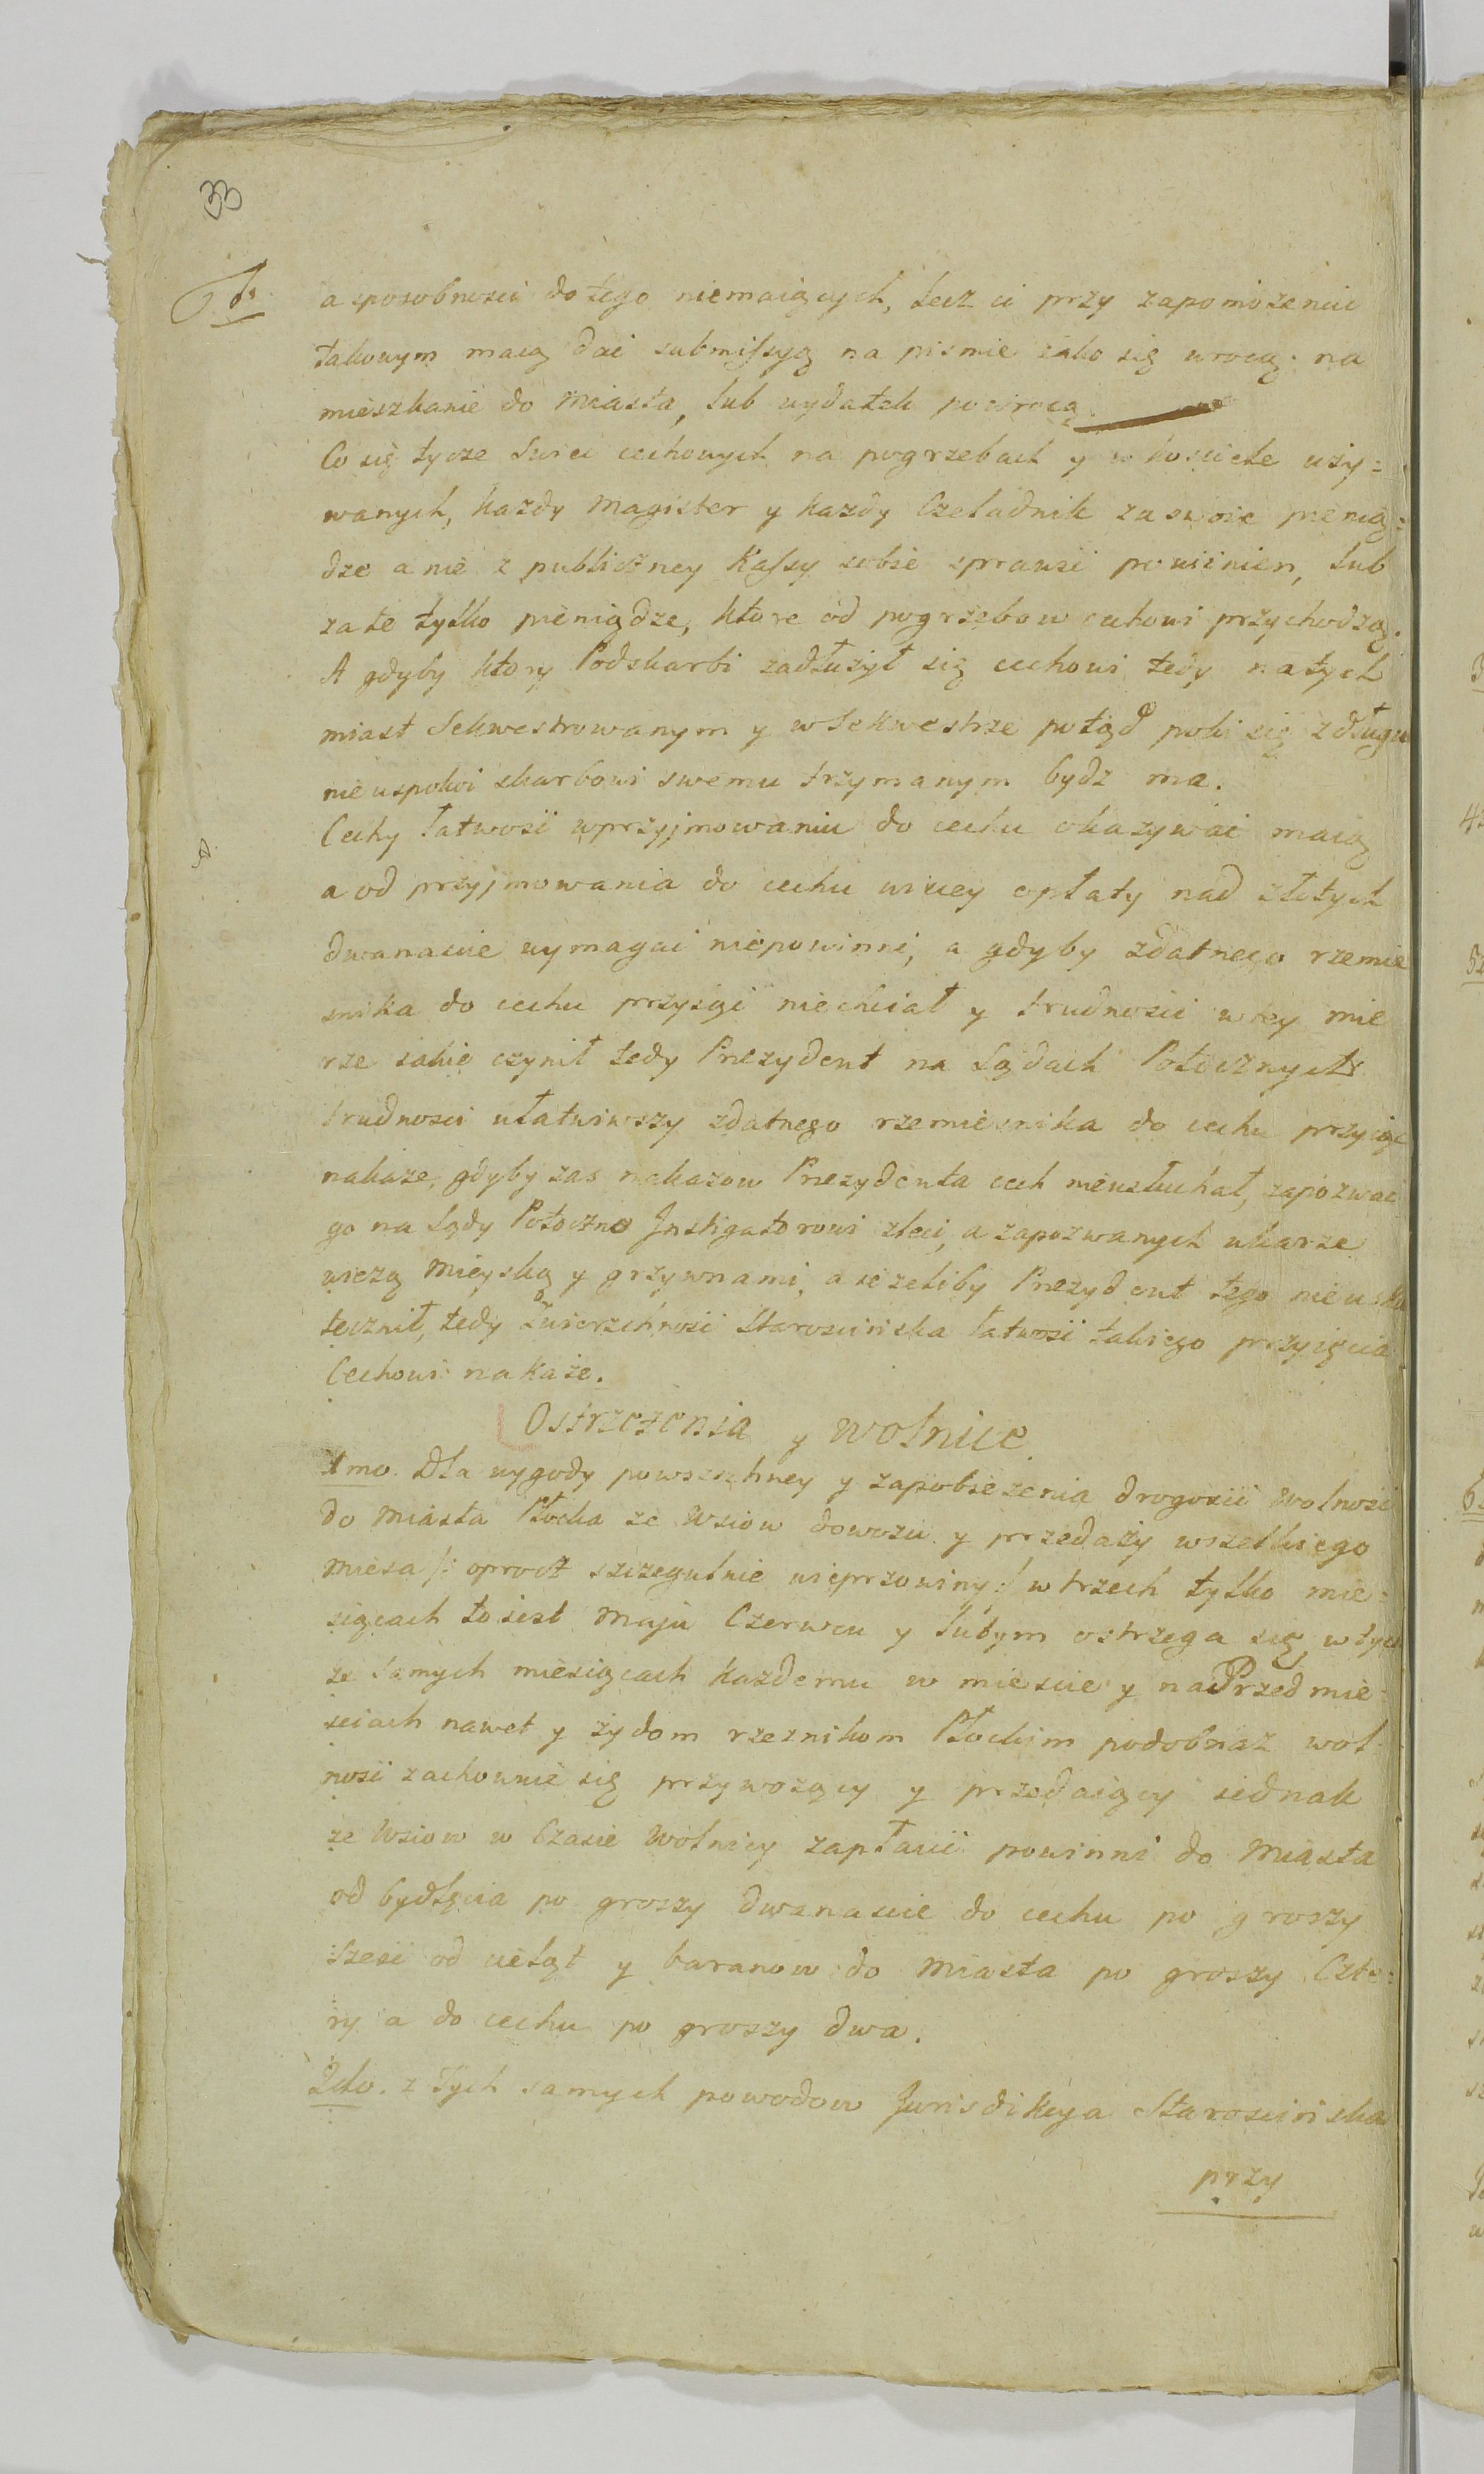 33
a sposobnosci do tego niemaiących, lecz ci przy zapomozeniu
takowym maią dac submissyą na pismie iako się wrocą na
mieszkanie do Miasta, lub wydatek powrocą.
Co się tycze Swiec cechowych na pogrzebach y w kosciele uzy=
wanych, kazdy Magister y kazdy Czeladnik za swoie pienią=
dze a nie z publiczney Kassy sobie sprawic powinien, lub
za te tylko pieniądze, ktore od pogrzebow cechowi przychodzą.
A gdyby ktory Podskarbi zadłuzył się cechowi tedy natych
miast Sekwestrowanym y w Sekwestrze potąd poki się z długu
nieuspokoi skarbowi swemu trzymanym bydz ma.
Cechy łatwosc w przyjmowaniu do cechu okazywac maią
a od przyjmowania do cechu wiecey opłaty nad złotych
dwanascie wymagac niepowinni, a gdyby zdatnego rzemie
snika do cechu przyiąc niechciał y trudnosci w tey mie
rze iakie czynił tedy Prezydent na Sądach Potocznych
trudnosci ułatwiwszy zdatnego rzemiesnika do cechu przyiąc
nakaze, gdyby zas nakazow Prezydenta cech nieusłuchał, zapozwac
go na Sądy Potoczne Instigatorowi zleci, a zapozwanych ukarze
wiezą Mieyską y grzywnami, a iezeliby Prezydent tego nieusku
tecznił, tedy Zwierzchnosc Staroscinska łatwosc takiego przyięcia
Cechowi nakaże.
Ostrzezenia y Wolnice
1mo. Dla wygody powszechney y zapobiezenia drogosci wolnosc
do Miasta Płocka ze Wsiow dowozu y przedaży wszelkiego
Miesa /: oprocz szczegulnie wieprzowiny :/ w trzech tylko mie=
siącach to iest Maju Czerwcu y Lutym ostrzega się, w tych
ze samych miesiącach kazdemu w miescie y na Przedmie=
sciach nawet y zydom rzeznikom Płockim podobnaz wol
nosc zachownie się przywozący y przedaiący iednak
ze Wsiow w Czasie Wolnicy zapłacic powinni do Miasta
od bydlęcia po groszy dwanascie do cechu po groszy
szesc od cieląt y baranow do Miasta po groszy Czte=
ry a do cechu po groszy dwa.
2do. z Tych samych powodow Jurisdikcya Staroscinska
przy